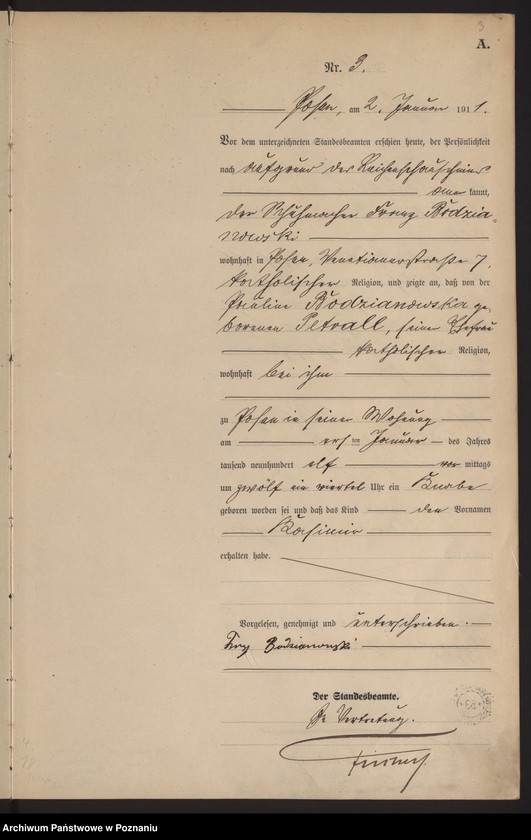 3
A.
Nr. 3.
Posen, am 2. Januar 1911.
Vor dem unterzeichneten Standesbeamten erschien heute, der Persönlichkeit
nach auf Grund des
kannt,
der Schuhmacher Franz Bodzia-
nowski
wohnhaft in Posen, Venetianerstraße 7,
katholischer Religion, und zeigte an, daß von der
Pauline Bodzianowska ge-
borenen Petrall, seiner Ehefrau
katholischer Religion,
wohnhaft bei ihm
zu Posen in seiner Wohnung
am ersten Januar des Jahres
tausend neunhundert elf vor mittags
um zwölf ein viertel Uhr ein Knabe
geboren worden sei und daß das Kind den Vornamen
Kasimir
erhalten habe.
Vorgelesen, genehmigt und unterschrieben.
Bodzianowski
Der Standesbeamte.
In Vertretung.
Archiwum Państwowe w Poznaniu